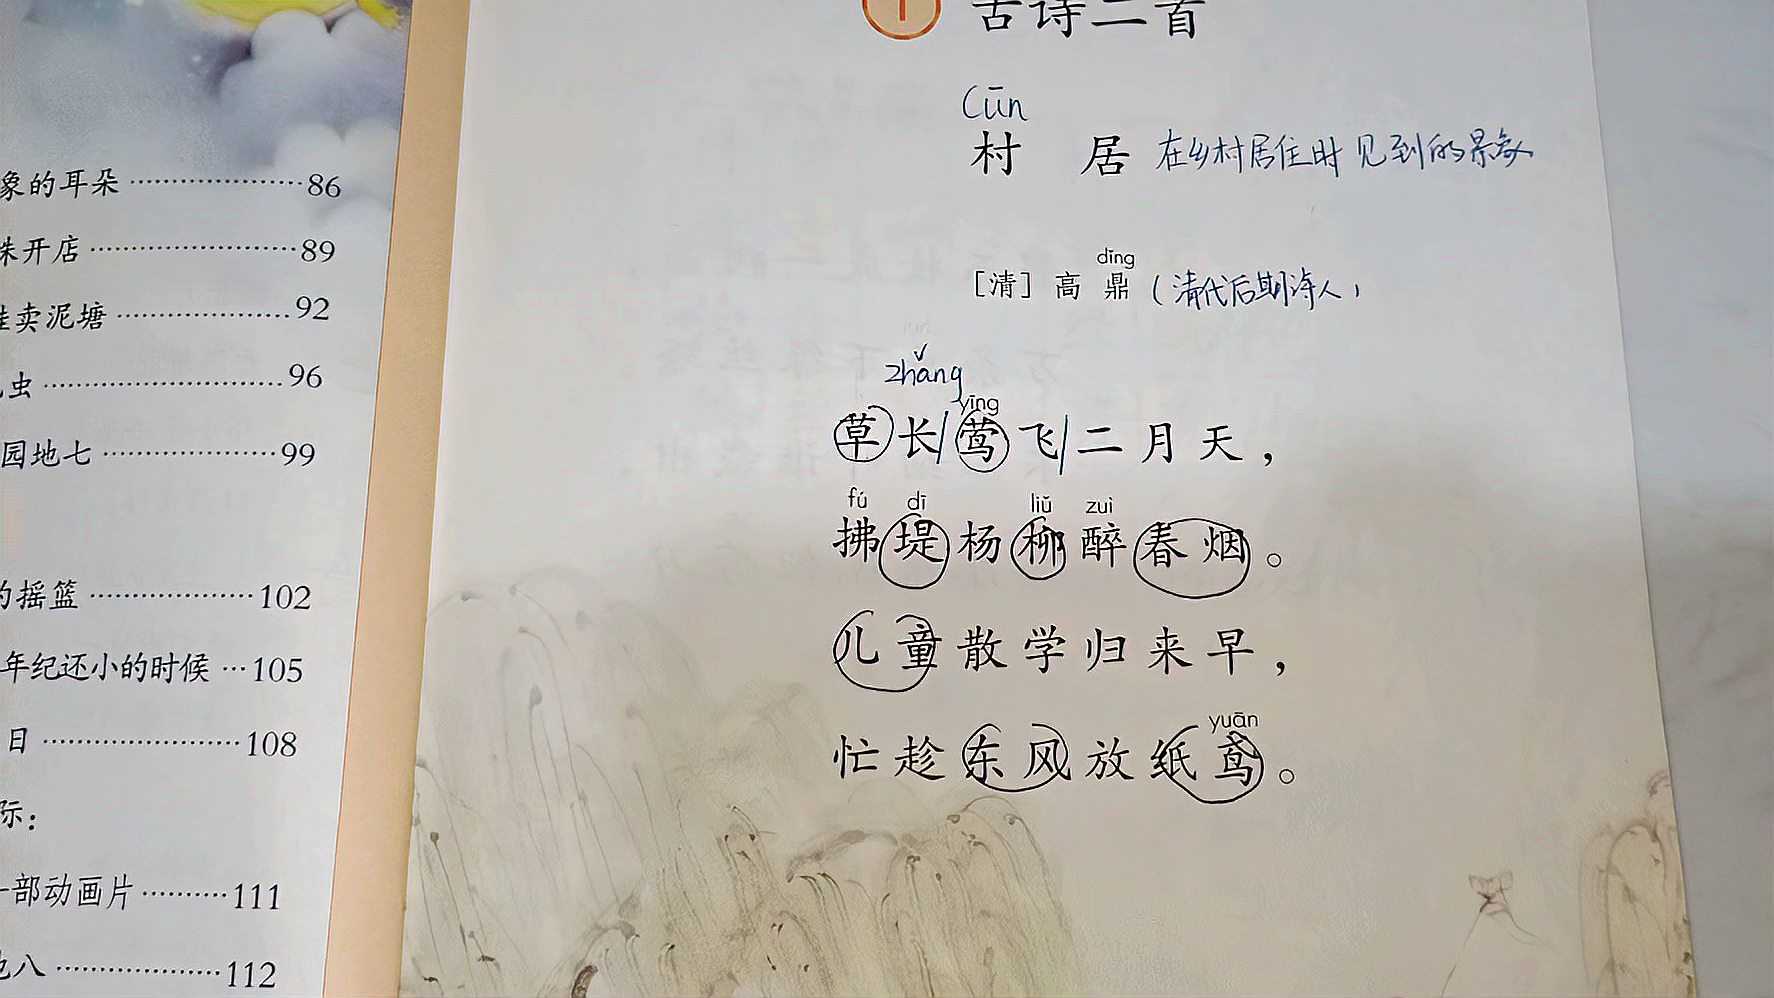 象的耳朵 ··················· 86
开店 ······················· 89
卖泥塘 ··················· 92
虫 ·························· 96
园地七 ··················· 99
的摇篮 ·················· 102
年纪还小的时候 ··· 105
日 ······················ 108
际：
一部动画片 ·········· 111
八 ·················· 112
1 古诗二首
Cūn
村 居 在乡村居住时见到的景象
dǐng
［清］高 鼎 (清代后期诗人)
zhǎng yīng
草长/莺飞/二月天，
fú dī liǔ zuì
拂堤杨柳醉春烟。
儿童散学归来早，
yuān
忙趁东风放纸鸢。